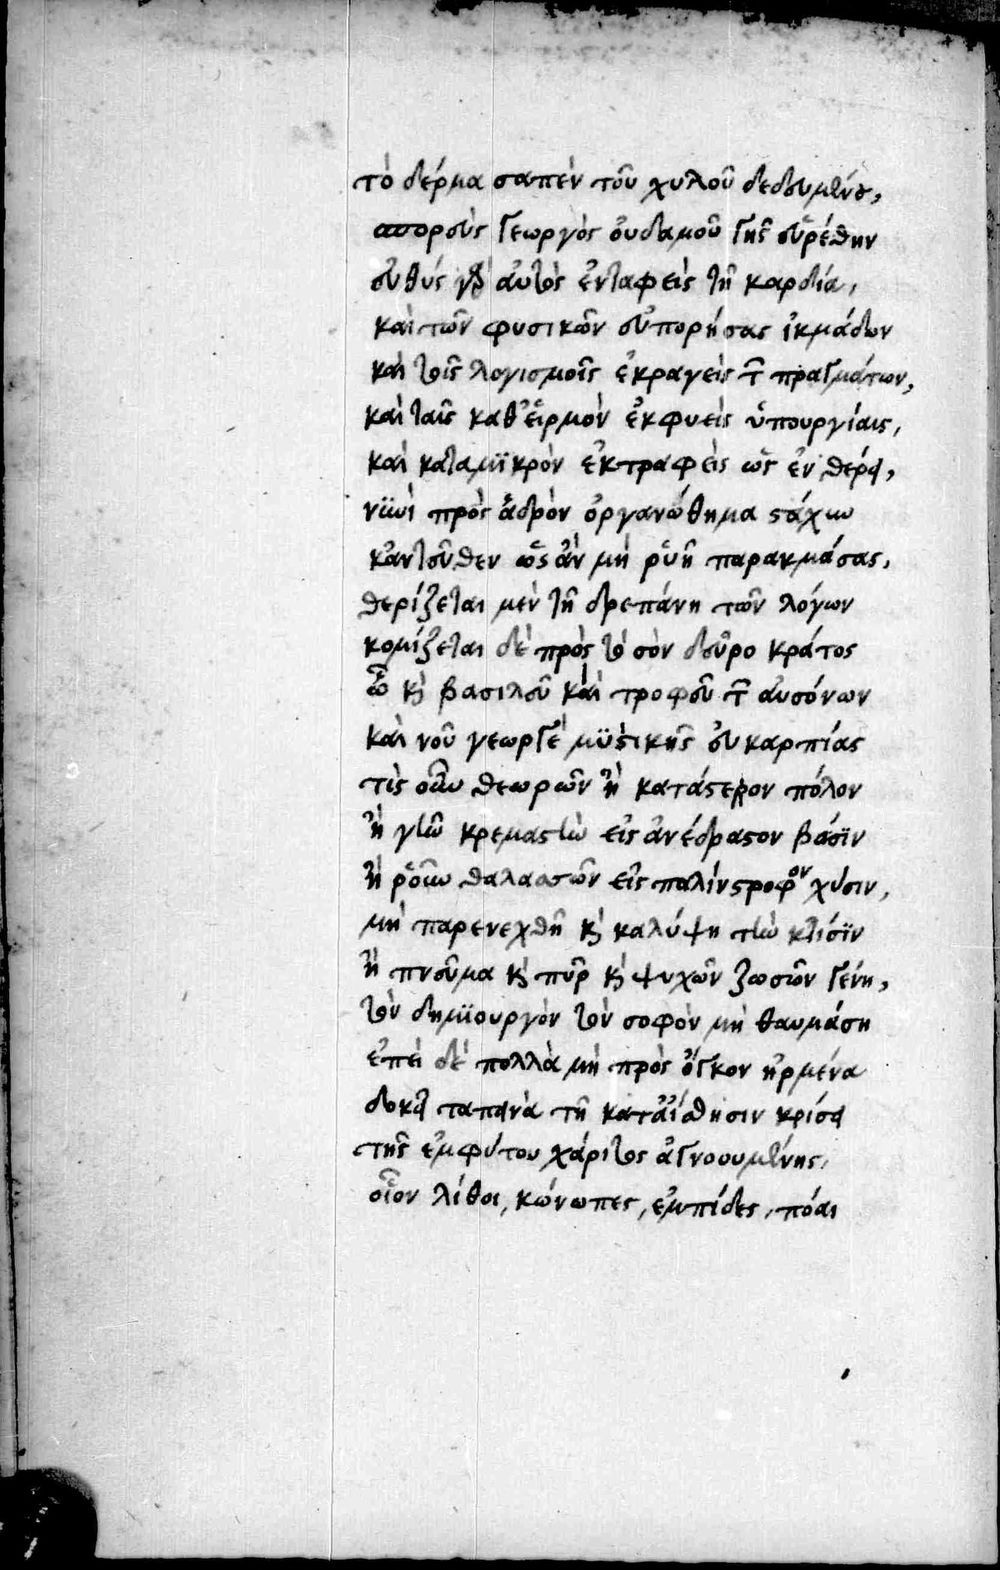 τὸ δέρμα σαπὲν τοῦ χυλοῦ δεδουμένου,
σπορεὺς γεωργὸς οὐδαμοῦ γῆς εὑρέθην
εὐθὺς γὰρ αὐτὸς ἐνταφεὶς τῇ καρδία,
καὶ τῶν φυσικῶν εὐπορήσας ἰκμάδων
καὶ τοῖς λογισμοῖς ἐκραγεὶς τῶν πραγμάτων,
καὶ ταῖς καθ' εἱρμὸν ἐκφυεὶς ὑπουργίαις,
καὶ καταμϊκρὸν ἐκτραφεὶς ὡς ἐν θέρει,
νϋνὶ πρὸς ἁδρὸν ὀργανώθημα στάχυν
κἀντεῦθεν ὡς ἂν μὴ ῥυῇ παρακμάσας,
θερίζεται μὲν τῇ δρεπάνη τῶν λόγων
κομίζεται δὲ πρὸς τὸ σὸν δεῦρο κράτος
ὦ καὶ βασιλεῦ καὶ τροφεῦ τῶν αὐσόνων
καὶ νοῦ γεωργὲ μϋστικῆς εὐκαρπίας
τίς οὖν θεωρῶν ἢ κατάστερον πόλον
ἢ γῆν κρεμαστὴν εἰς ἀνέδραστον βάσϊν
ἢ ῥοῦν θαλασσῶν εἰς παλίνστροφον χύσιν,
μὴ παρενεχθῇ καὶ καλύψη τὴν κτίσϊν
ἢ πνεῦμα καὶ πῦρ καὶ ψυχῶν ζωσῶν γένη,
τὸν δημϊουργὸν τὸν σοφὸν μὴ θαυμάση
ἐπεὶ δὲ πολλὰ μὴ πρὸς ὄγκον ἠρμένα
δοκεῖ ταπεινὰ τῇ κατ' αἴσθησιν κρίσει
τῆς ἐμφύτου χάριτος ἀγνοουμένης,
οἷον λίθοι, κώνωπες, ἐμπίδες, πόαι